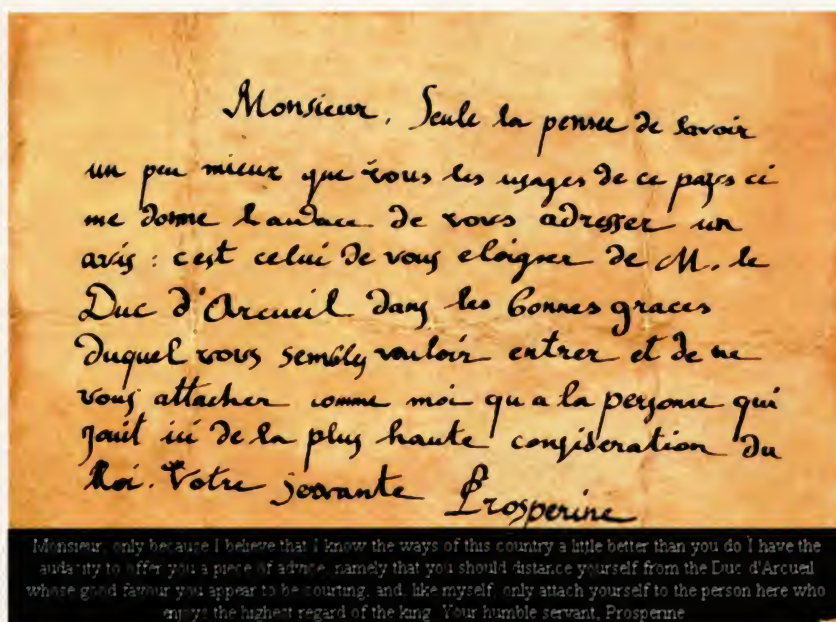 Monsieur, Seule la pensee de savoir
un peu mieux que vous les usages de ce pays ci
me donne l audace de vous adresser un
avis : c est celui de vous eloigner de M. le
Duc d'Arcueil dans les bonnes graces
duquel vous sembly vouloir entrer et de ne
vous attacher comme moi qu a la personne qui
jouit ici de la plus haute consideration du
Roi. Votre servante Prosperine
Monsieur, only because I believe that I know the ways of this country a little better than you do I have the
audacity to offer you a piece of advice, namely that you should distance yourself from the Duc d'Arcueil
whose good favour you appear to be courting, and, like myself, only attach yourself to the person here who
enjoys the highest regard of the king. Your humble servant, Prosperine